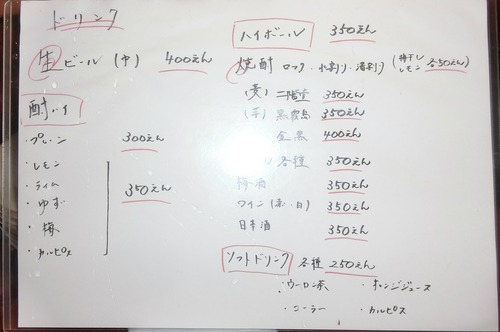 ドリンク
生ビール (中) 400えん
酎ハイ
・プレーン 300えん
・レモン
・ライム
・ゆず
・梅
・カルピス
350えん
ハイボール 350えん
焼酎 ロック・水割り・湯割り (梅干し レモン 各50えん)
(麦) 二階堂 350えん
(芋) 黒霧島 350えん
金黒 400えん
各種 350えん
梅酒 350えん
ワイン (赤・白) 350えん
日本酒 350えん
ソフトドリンク 各種 250えん
・ウーロン茶 ・オレンジジュース
・コーラー ・カルピス